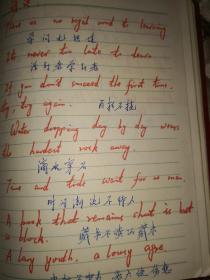 There is no royal end to learning
学问无坦途
It never too late to learn
活到老学到老
If you don't succeed the first time,
try, try again.
百折不挠
Water dropping day by day wears
the hardest rock away.
滴水穿石
Time and tide wait for no man.
时光潮流不待人
A book that remains shut is but
a block.
藏书不读如藏木
A lazy youth, a lousy age.